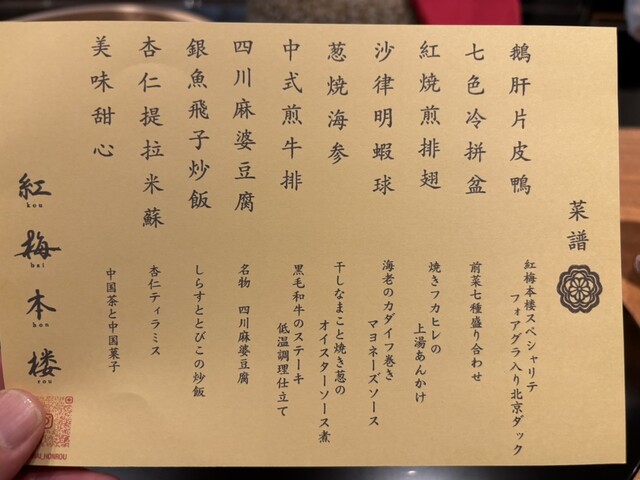 菜譜
鵝肝片皮鴨
紅梅本楼スペシャリテ
フォアグラ入り北京ダック
七色冷拼盆
前菜七種盛り合わせ
紅焼煎排翅
焼きフカヒレの
上湯あんかけ
沙律明蝦球
海老のカダイフ巻き
マヨネーズソース
葱焼海参
干しなまこと焼き葱の
オイスターソース煮
中式煎牛排
黒毛和牛のステーキ
低温調理仕立て
四川麻婆豆腐
名物 四川麻婆豆腐
銀魚飛子炒飯
しらすととびこの炒飯
杏仁提拉米蘇
杏仁ティラミス
美味甜心
中国茶と中国菓子
紅梅本楼
kou
bai
hon
rou